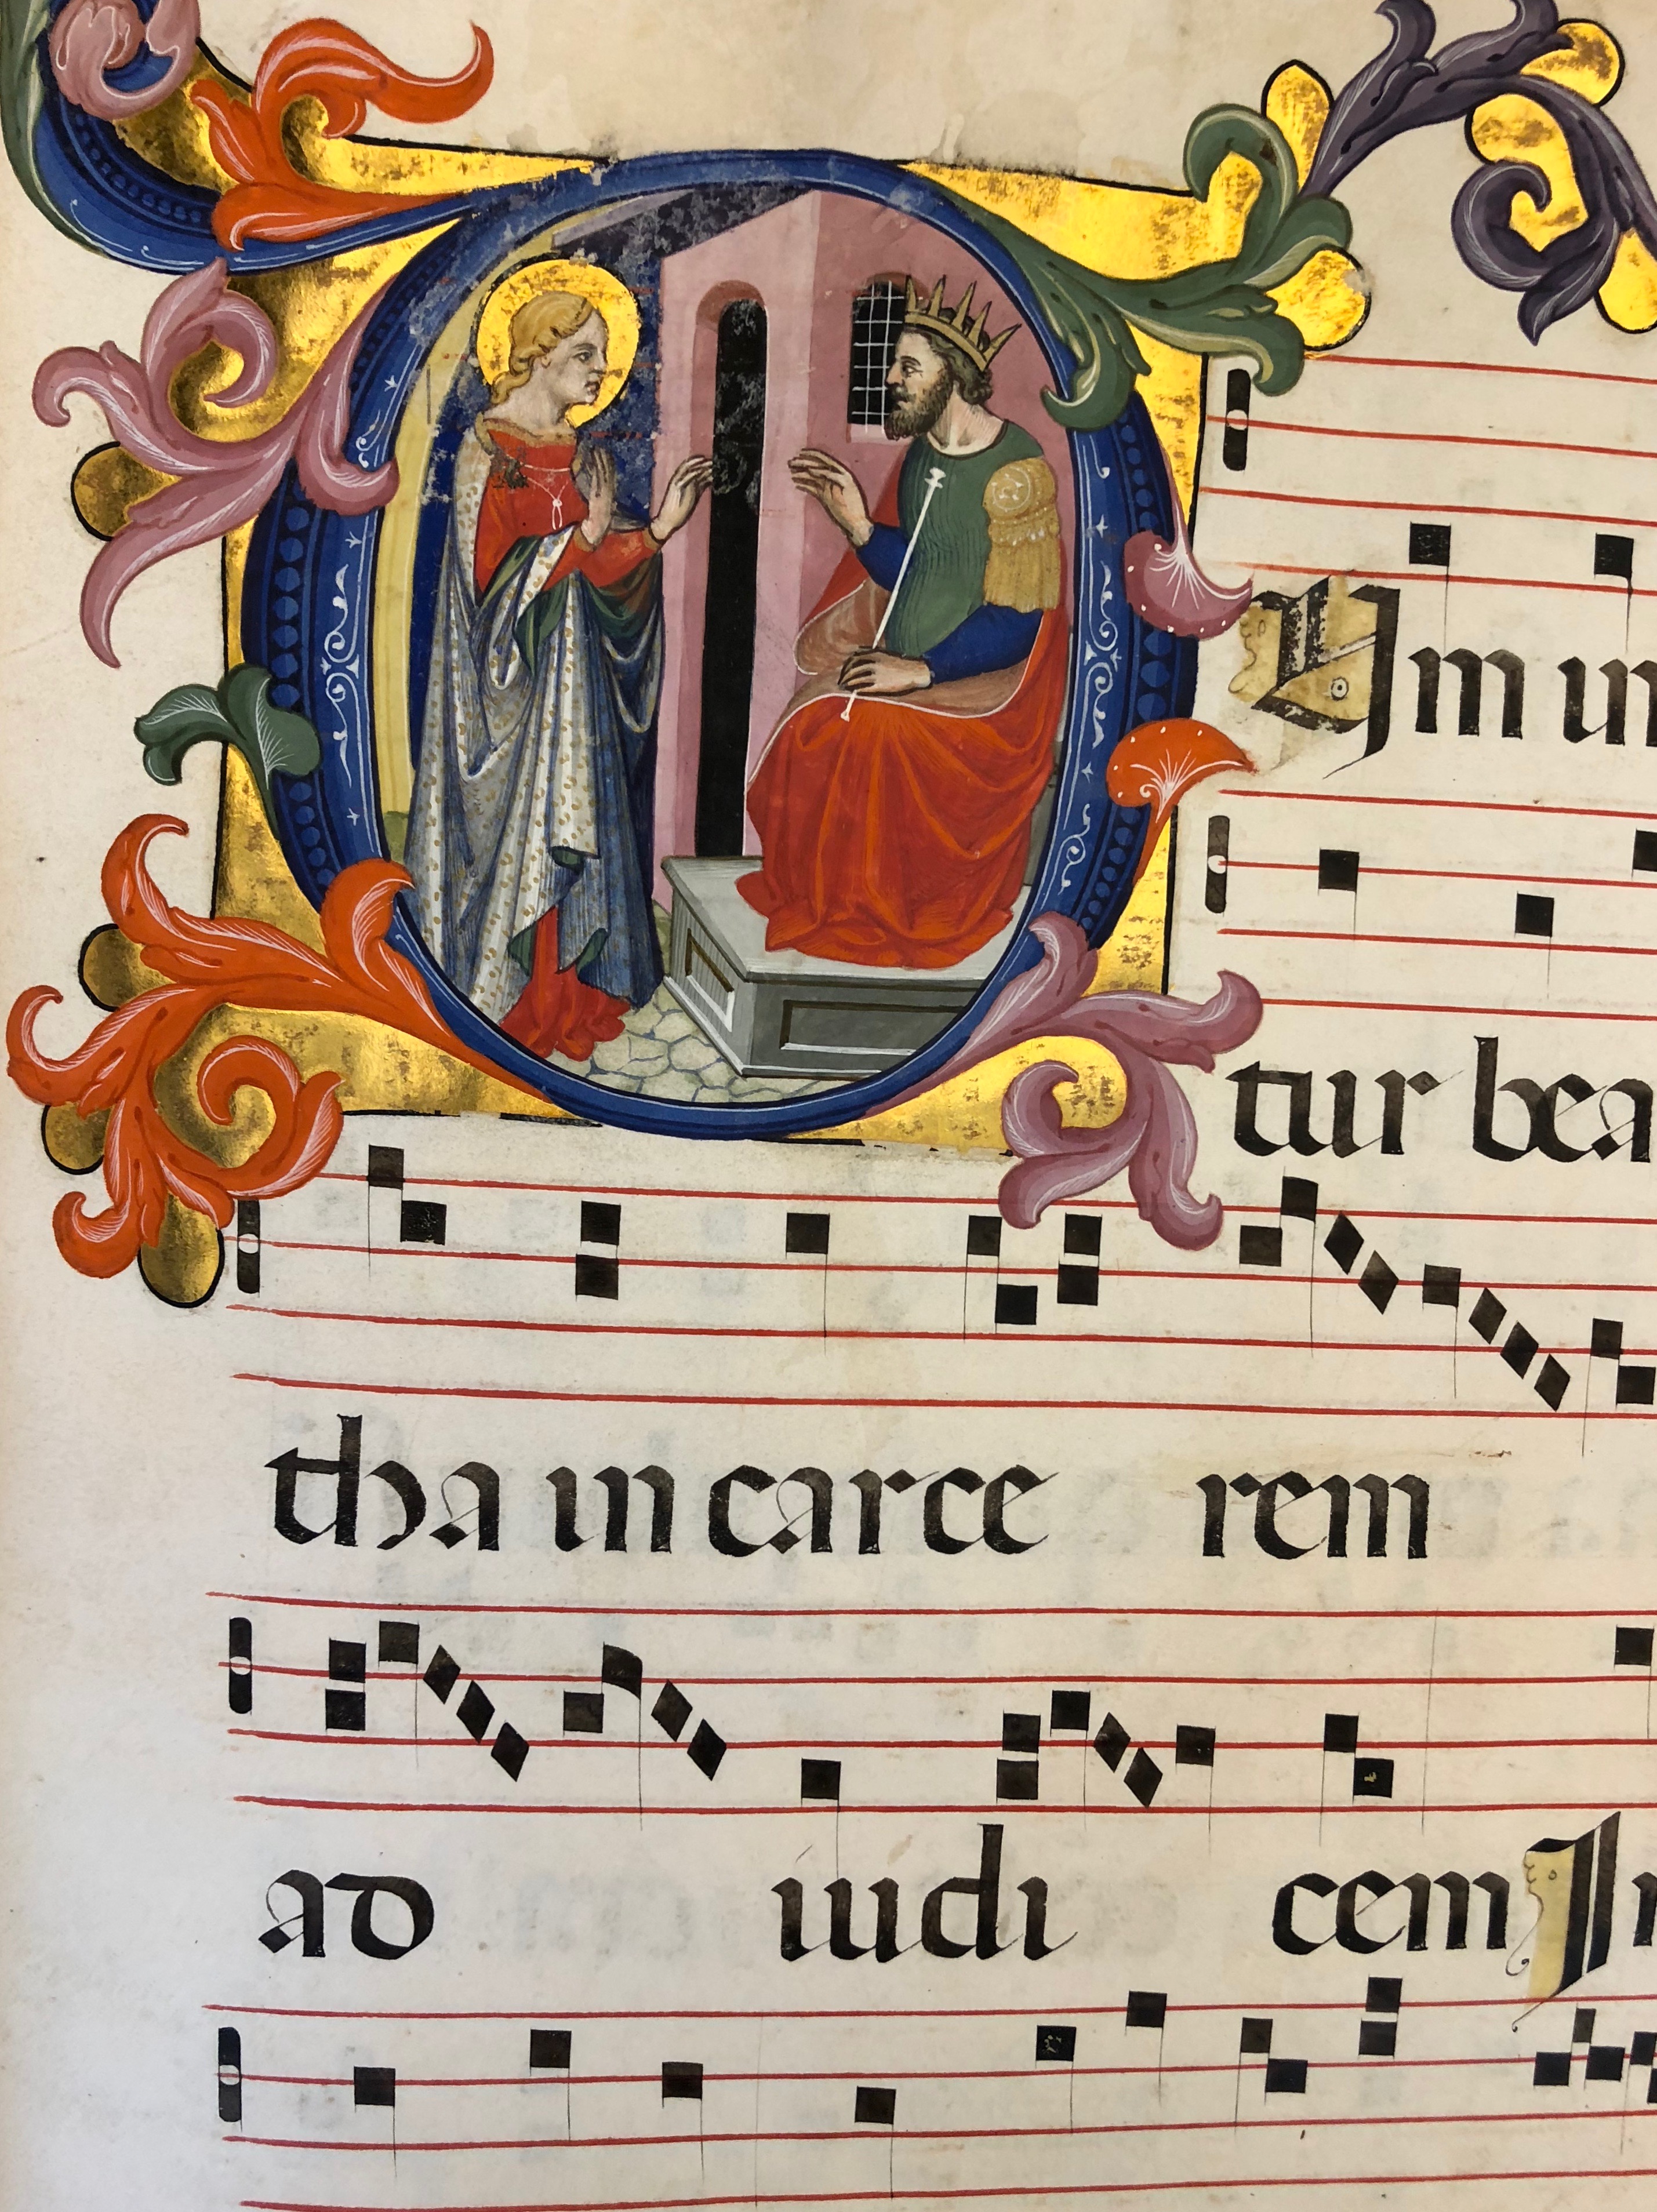 DUm in
tur bea
tha in carce rem
ad iudi cem I